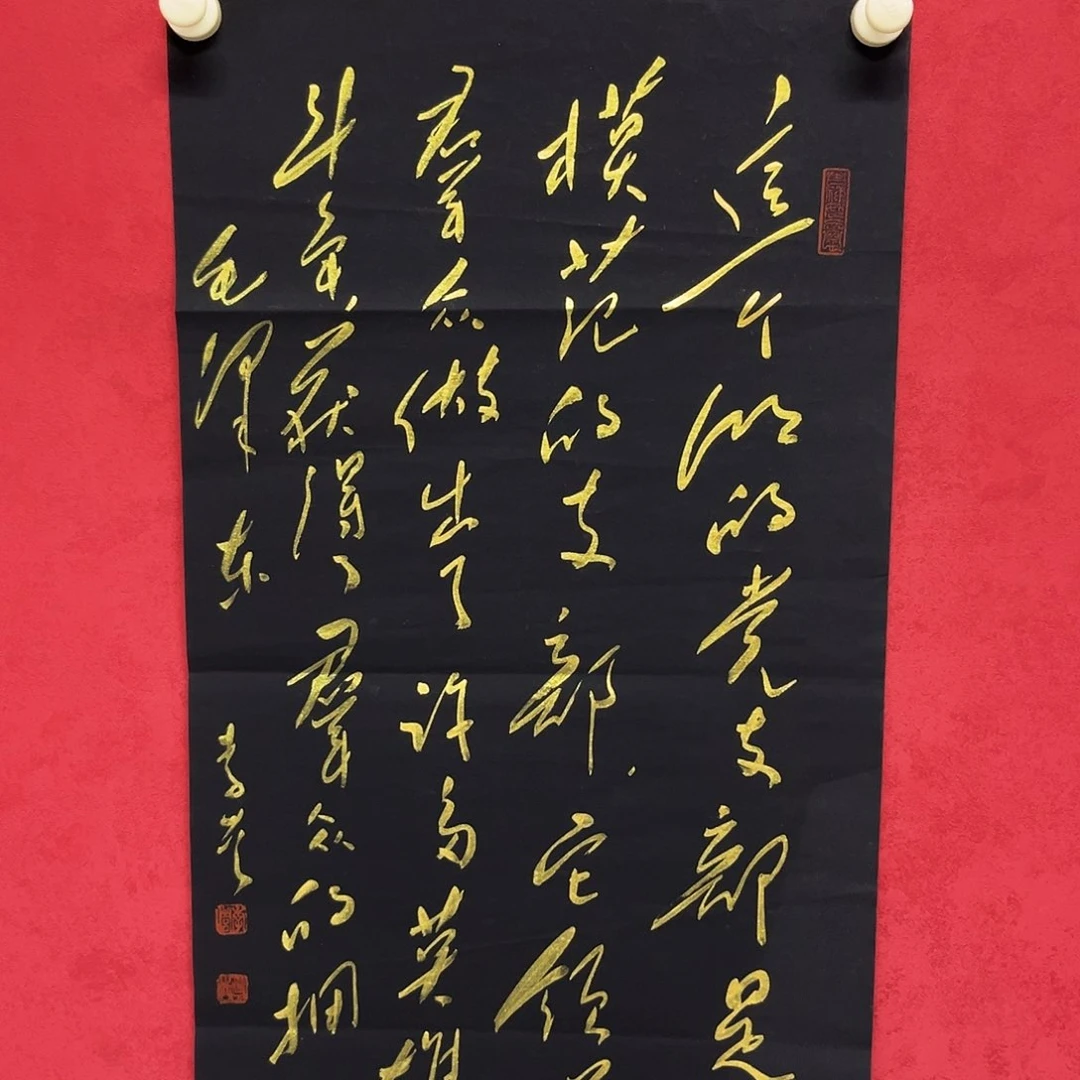 這个鄉的党支部是
模范的支部，它领
羣众做出了许多英雄
斗争，获得了羣众的拥
毛泽东